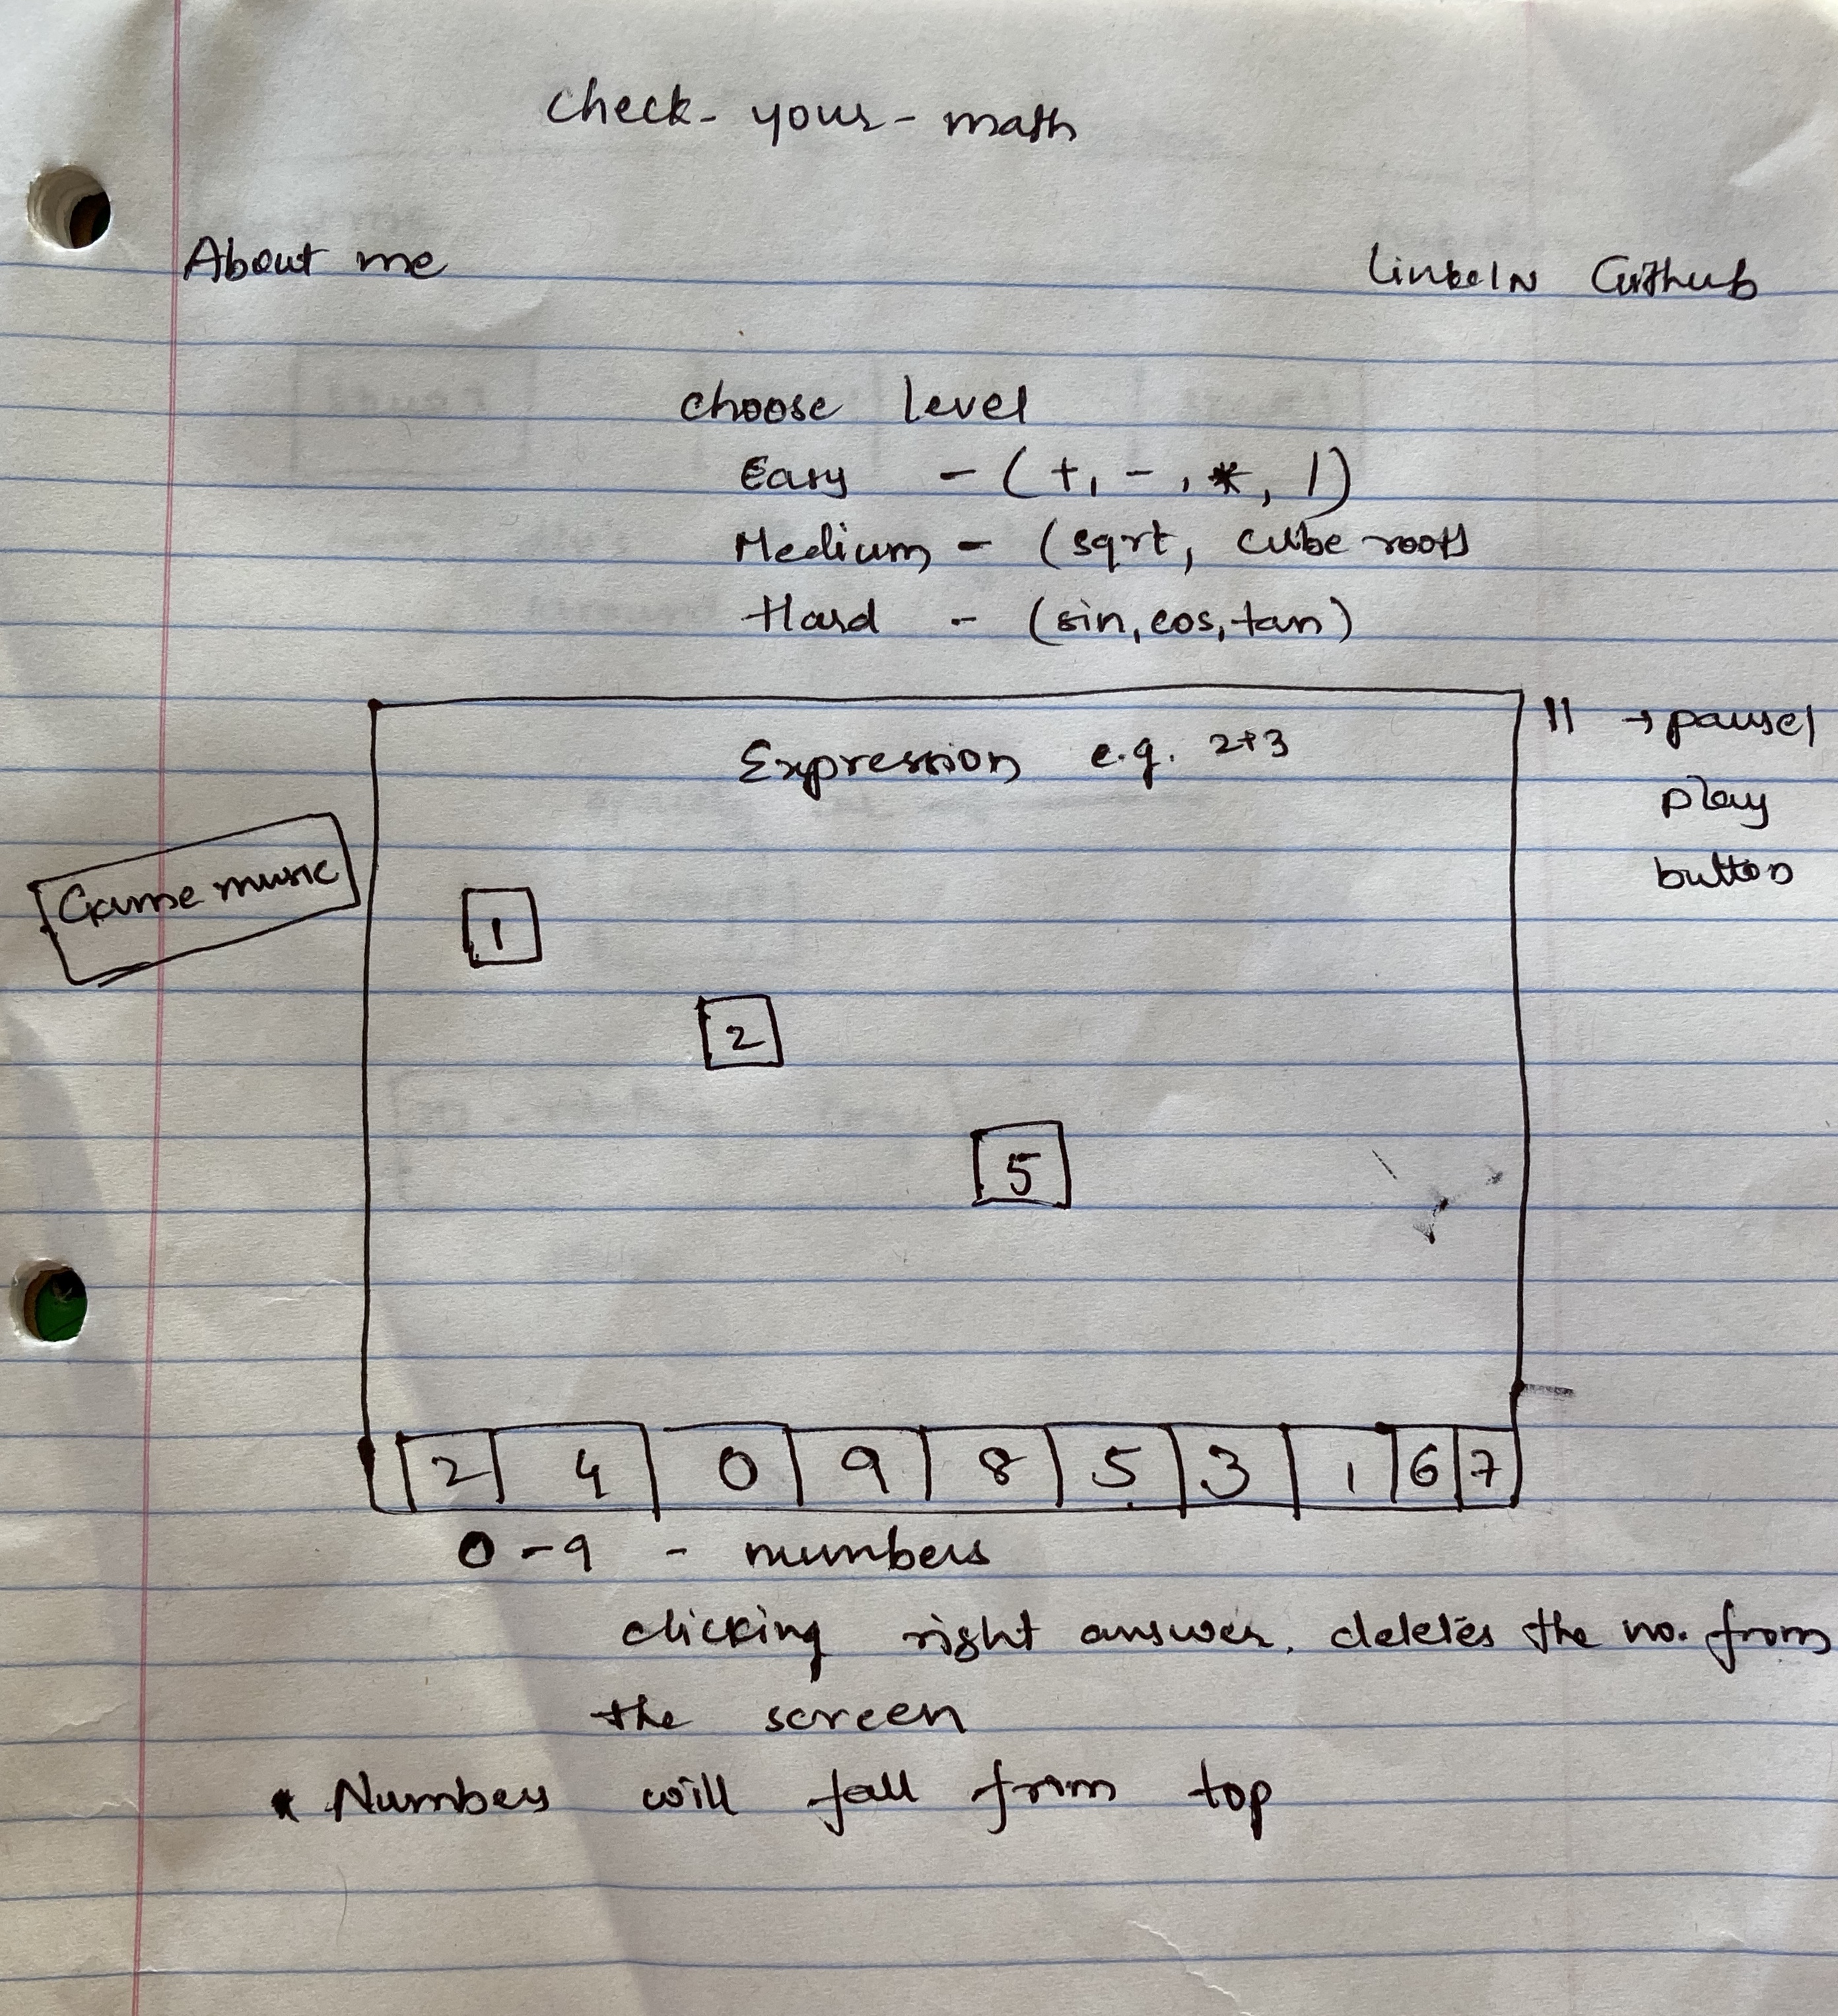 check-your-math
About me
LinkeIN Github
choose level
Easy - (+, -, *, /)
Medium - (sqrt, cube root)
Hard - (sin, cos, tan)
Expression e.g. 2+3
|| → pause/
play
button
Game music
1
2
5
2 4 0 9 8 5 3 1 6 7
0-9 - numbers
clicking right answer. deletes the no. from
the screen
* Numbers will fall from top